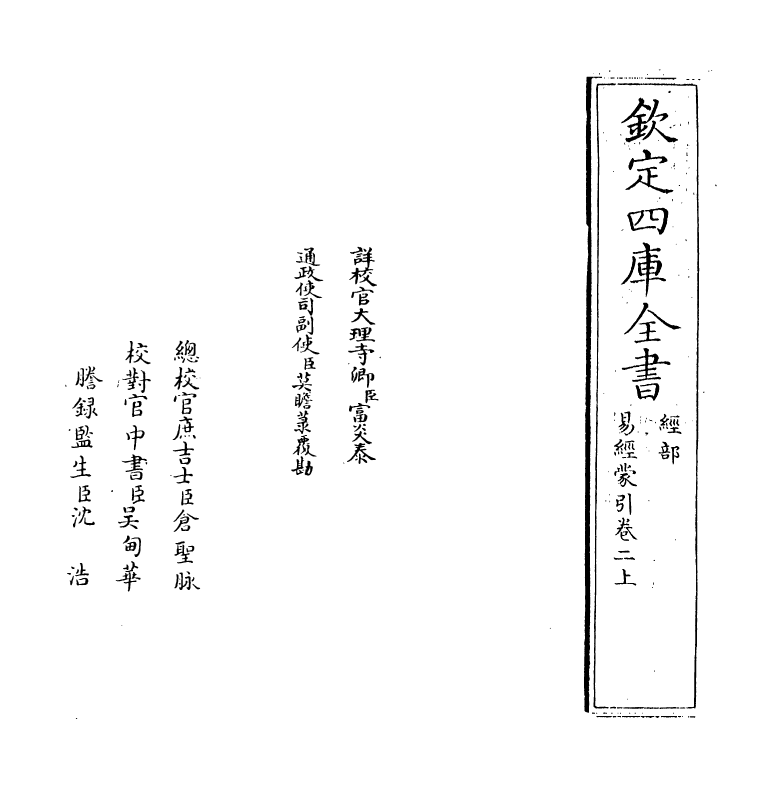 欽定四庫全書
經部
易經蒙引卷二上
詳校官大理寺卿臣富炎泰
通政使司副使臣莫瞻菉覆勘
總校官庶吉士臣倉聖脉
校對官中書臣吴甸華
謄録監生臣沈浩